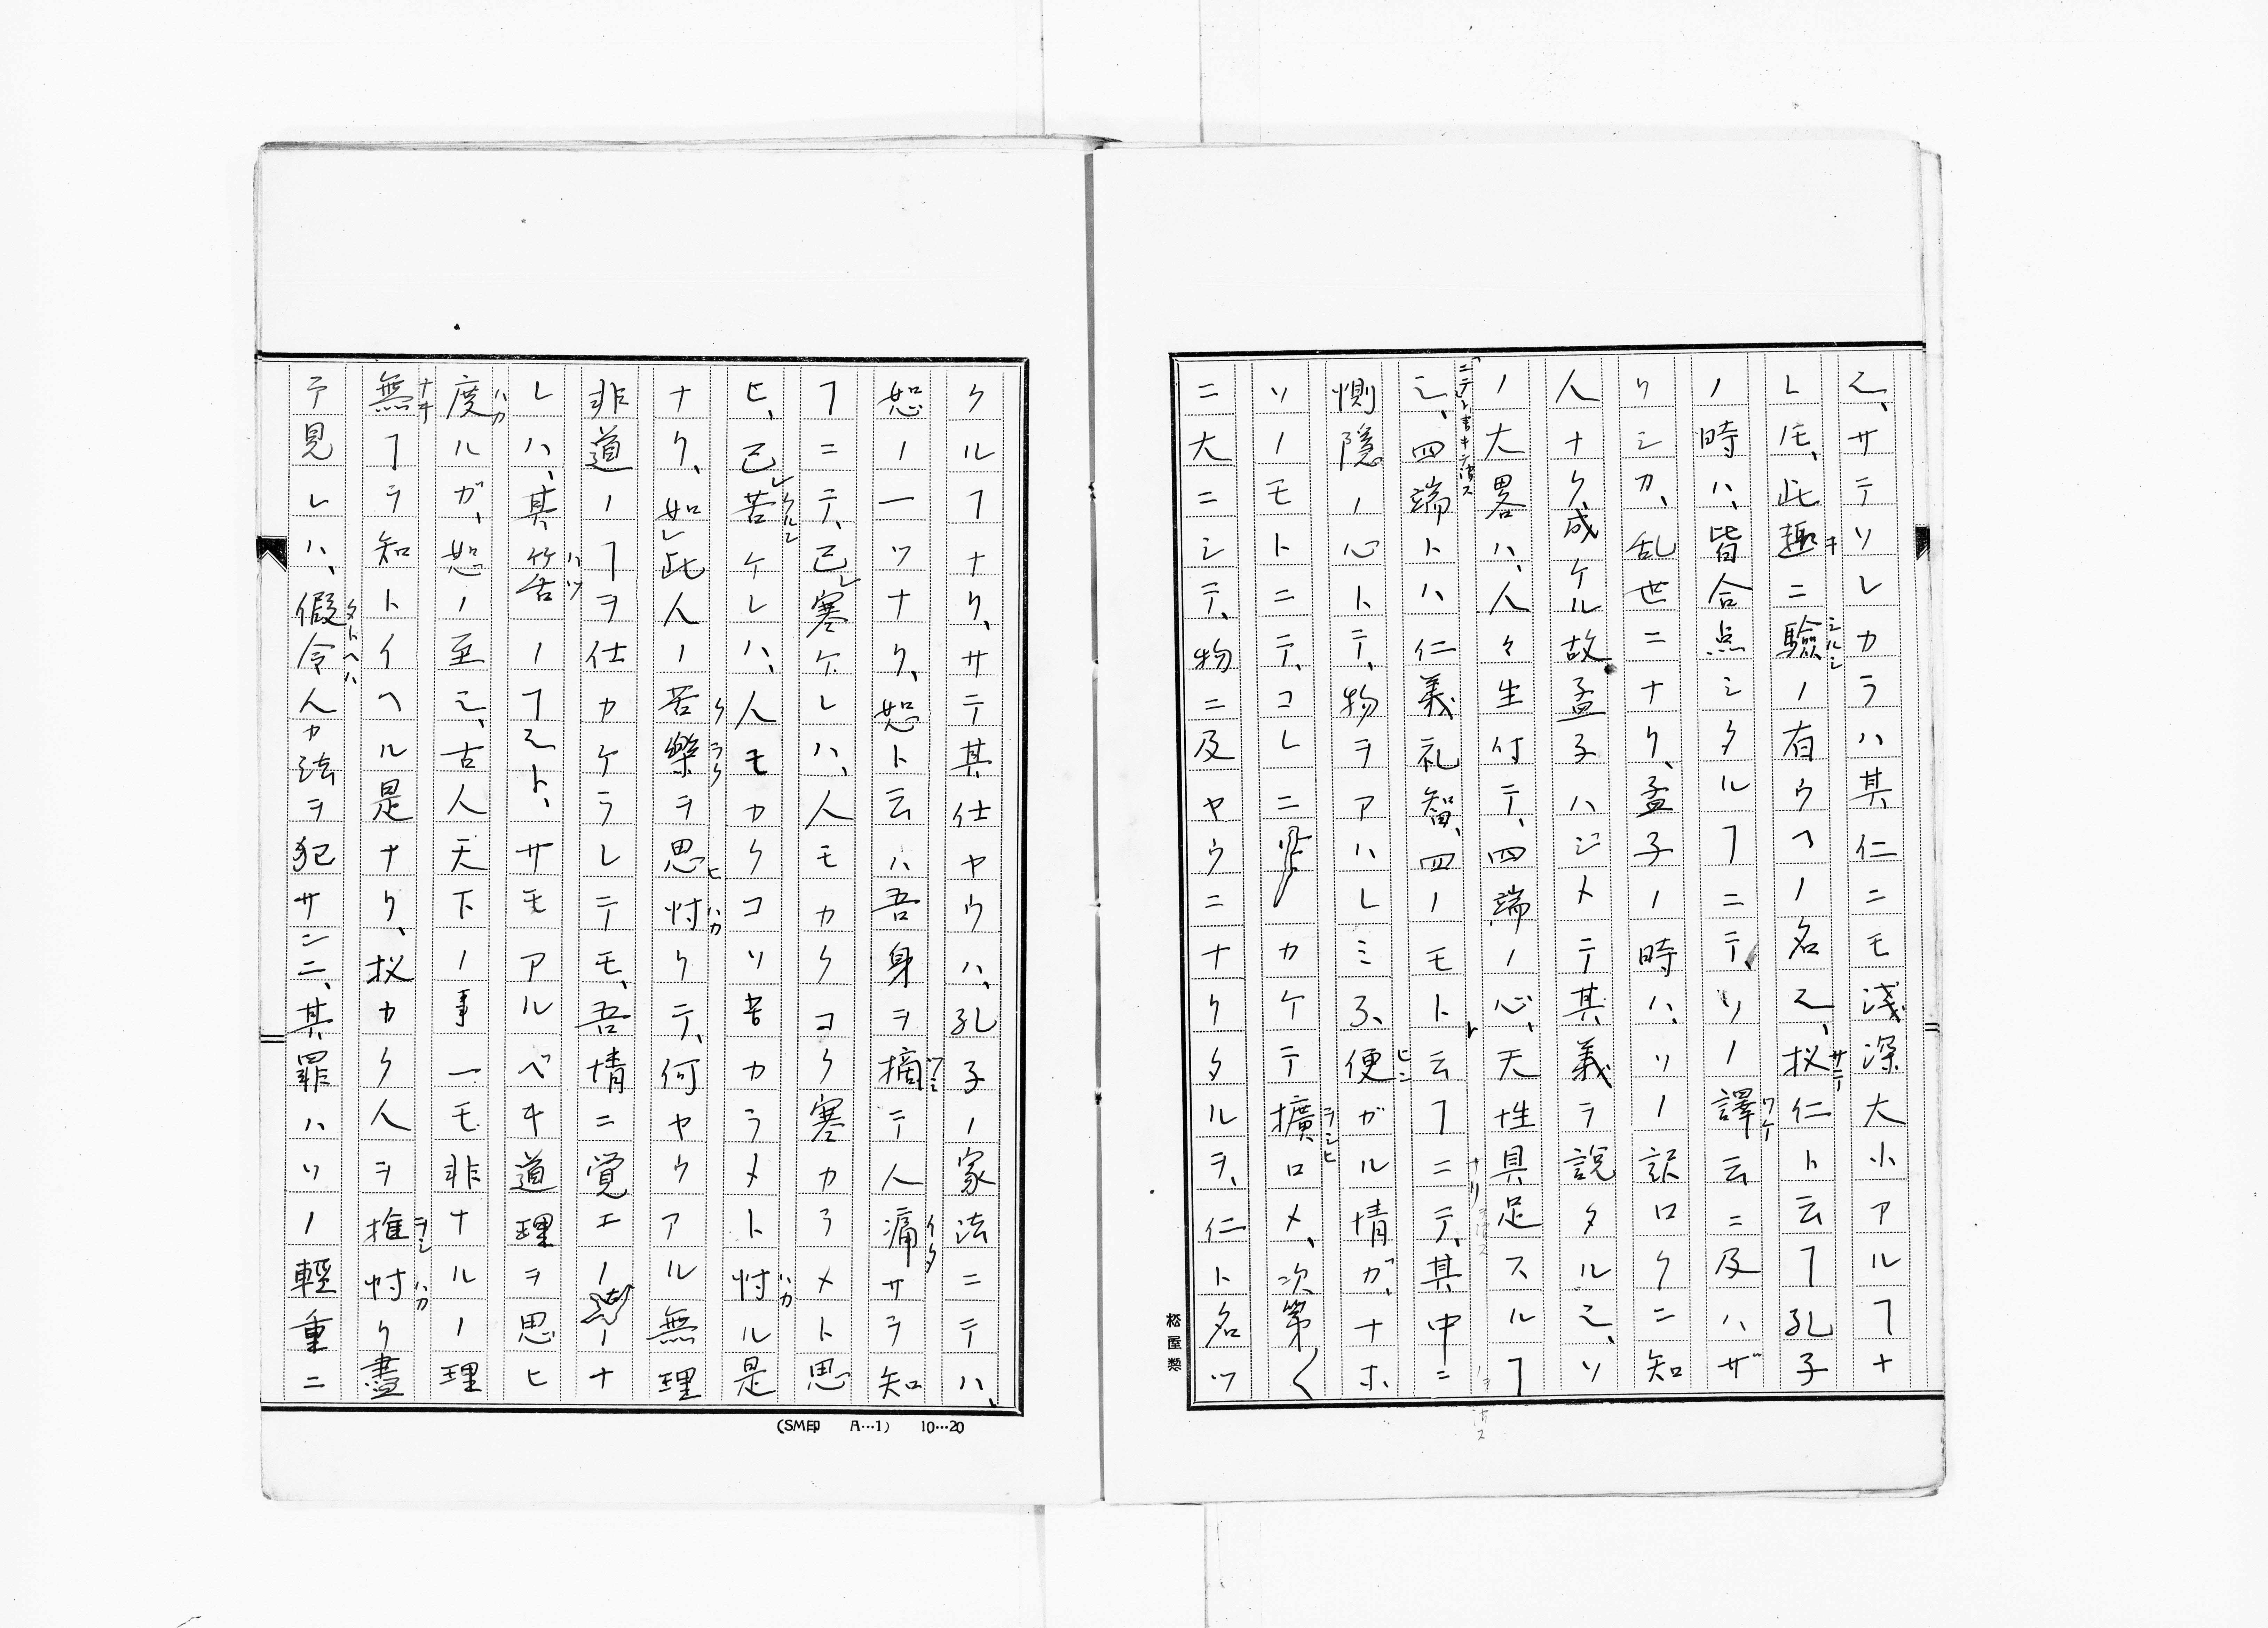 也、サテソレカラハ其仁ニモ淺深大小アルヿナ
レ𪜈、此趣ニ驗ノ有ウヘノ名也、扨仁ト云ヿ孔子
キ シルシ サテ
ノ時ハ、皆合点シタルヿニテ、ソノ譯云ニ及ハザ
ワケ
リシカ、乱世ニナリ、孟子ノ時ハ、ソノ訳ロクニ知
人ナク成ケル故、孟子ハジメテ其義ヲ説タル也、ソ
ノ大畧ハ、人々生付テ、四端ノ心、天性具足スルヿ
也、四端トハ仁義礼智、四ノモト云ヿニテ、其中ニ
惻隠ノ心トテ、物ヲアハレミ不便ガル情ガ、ナホ
ビン
ソノモトニテ、コレニカケテ擴ロメ、次第〱
ヲシヒ
ニ大ニシテ、物ニ及ヤウニナリタルヲ、仁ト名ツ
松屋製
クルヿナリ、サテ其仕ヤウハ、孔子ノ家法ニテハ、
恕ノ一ツナリ、恕ト云ハ吾身ヲ摘テ人痛サヲ知
ツミ イタ
ヿニテ、己レ寒ケレハ、人モカクコソ寒カラメト思
ヒ、己レ苦ケレハ、人モカクコソ苦カラメト忖ル是
クルシ ハカ
ナリ、如レ此人ノ苦樂ヲ思忖リテ、何ヤウアル無理
クラク ヒハカ
非道ノヿヲ仕カケラレテモ、吾情ニ覚エノナ
レハ、其筈ノヿ也ト、サモアルベキ道理ヲ思ヒ
ハツ
度ルガ、恕ノ至也、古人天下ノ事一モ非ナルノ理
ハカ
無ヿヲ知トイヘル是ナリ、扨カク人ヲ推忖リ盡
ナキ ヲシ ハカ
テ見レハ、假令人カ法ヲ犯サンニ、其罪ハソノ輕重ニ
タトヘハ
(SM印 A…1) 10…20